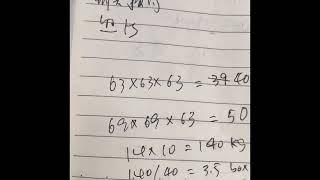 63×63×63 = 3940
69×69×63 = 50
14×10 = 140 kg
140/40 = 3.5 box